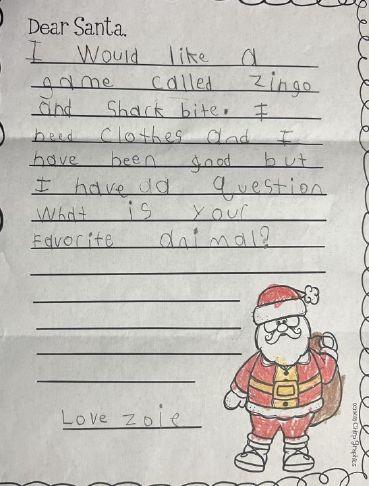 Dear Santa,
I Would like a
game called Zingo
and Shark bite. I
need Clothes and I
have been good but
I have ud question
What is your
Favorite animal?
Love zoie